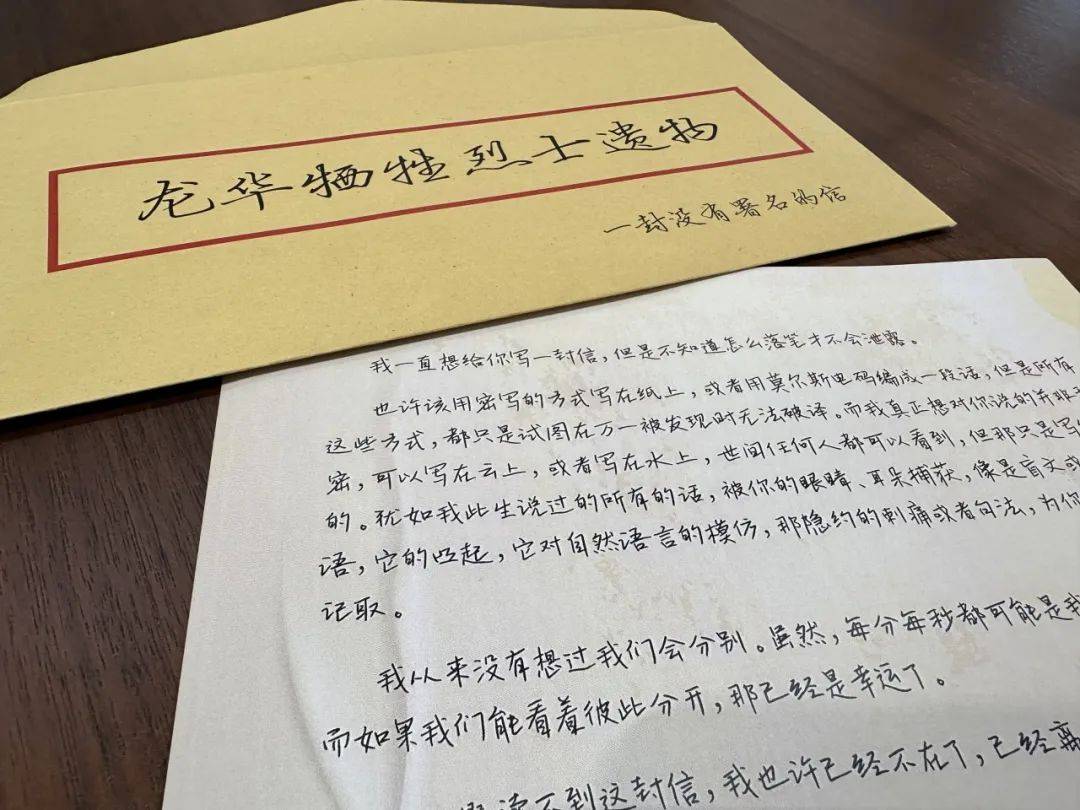 龙华牺牲烈士遗物
一封没有署名的信
我一直想给你写一封信，但是不知道怎么落笔才不会泄露。
也许该用密写的方式写在纸上，或者用莫尔斯电码编成一段话，但是所有
这些方式，都只是试图在万一被发现时无法破译。而我真正想对你说的并非
密，可以写在云上，或者写在水上，世间任何人都可以看到，但那只是写
的。犹如我此生说过的所有的话，被你的眼睛、耳朵捕获，像是盲文或
语，它的凸起，它对自然语言的模仿，那隐约的刺痛或者句法，为你
记取。
我从来没有想过我们会分别。虽然，每分每秒都可能是我
而如果我们能看着彼此分开，那已经是幸运了。
读不到这封信，我也许已经不在了，已经离